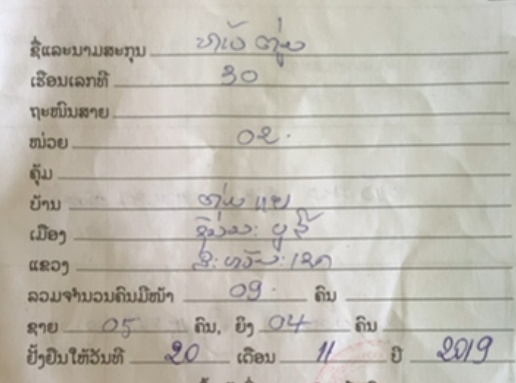 ຊື່ແລະນາມສະກຸນ ທ້າວ
ເຮືອນເລກທີ 30
ຖະໜົນສາຍ
ໜ່ວຍ 02.
ຄຸ້ມ
ບ້ານ
ເມືອງ
ແຂວງ ສະຫວັນນະເຂດ
ລວມຈຳນວນຄົນມີໜ້າ 09. ຄົນ
ຊາຍ 05 ຄົນ, ຍິງ 04 ຄົນ
ຢັ້ງຢືນໃຫ້ວັນທີ 20 ເດືອນ 11 ປີ 2019